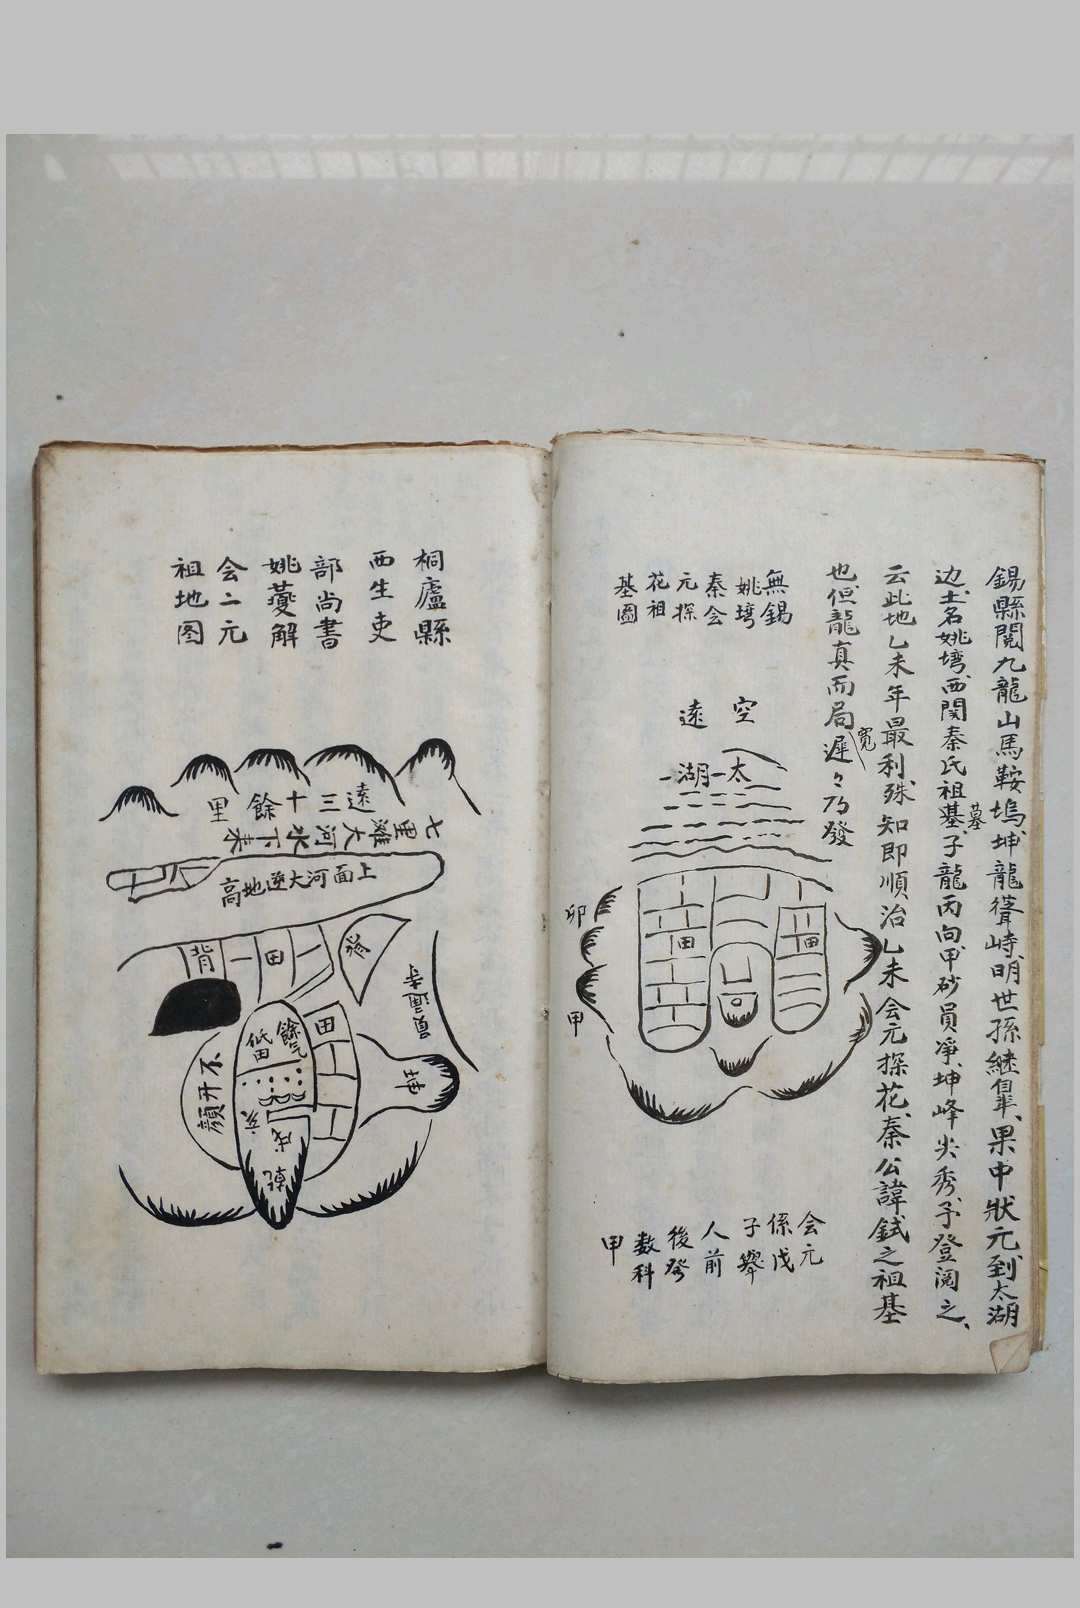 錫縣閱九龍山馬鞍塢坤龍聳峙明世孫継皋果中狀元到太湖
边土名姚塆西関秦氏祖墓子龍丙向甲砂員凈坤峰尖秀予登阅之
墓
云此地乙未年最利殊知即順治乙未会元探花秦公諱鉽之祖基
也但龍真而局遲々乃發
寛
無錫
姚塆
秦会
元探
花祖
基圖
空
遠
太
湖
卯
甲
田
田
会元
係戊
子舉
人前
後發
数科
甲
桐廬縣
西生吏
部尚書
姚夔解
会二元
祖地图
遠三十餘里
七里灘大河水下来
上面河大邊地高
背
田
田
坤
餘气
低田
不开顔
亥
戌
乾